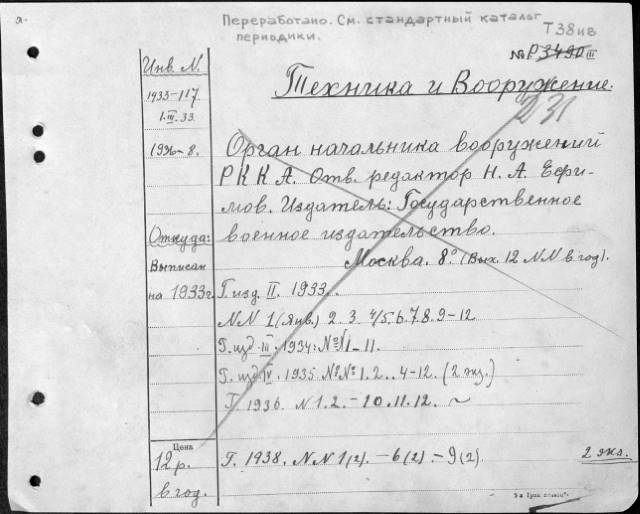 а-
Переработано. См. стандартный каталог
периодики.
Т38ив
№ Р3490 III
Инв. N.
Техника и Вооружение.
1933-117
1.III.33.
Д31
1936-8.
Орган начальника вооружений
РККА. Отв. редактор Н. А. Ефи-
мов. Издатель: Государственное
Откуда:
военное издательство.
Выписан
Москва. 8°. (Вых. 12 NN в год).
на 1933г.
Г. изд. II. 1933.
NN 1 (Янв.) 2. 3. 4/5. 6. 7. 8. 9-12
Г. изд. III. 1934: №№ 1-11.
Г. изд. IV. 1935 №№ 1. 2.. 4-12. (2 экз.)
Г. 1936. N 1. 2. - 10. 11. 12. ~
Цена
12 р.
Г. 1938. NN 1(2). - 6(2). - 9(2)
2 экз.
в год.